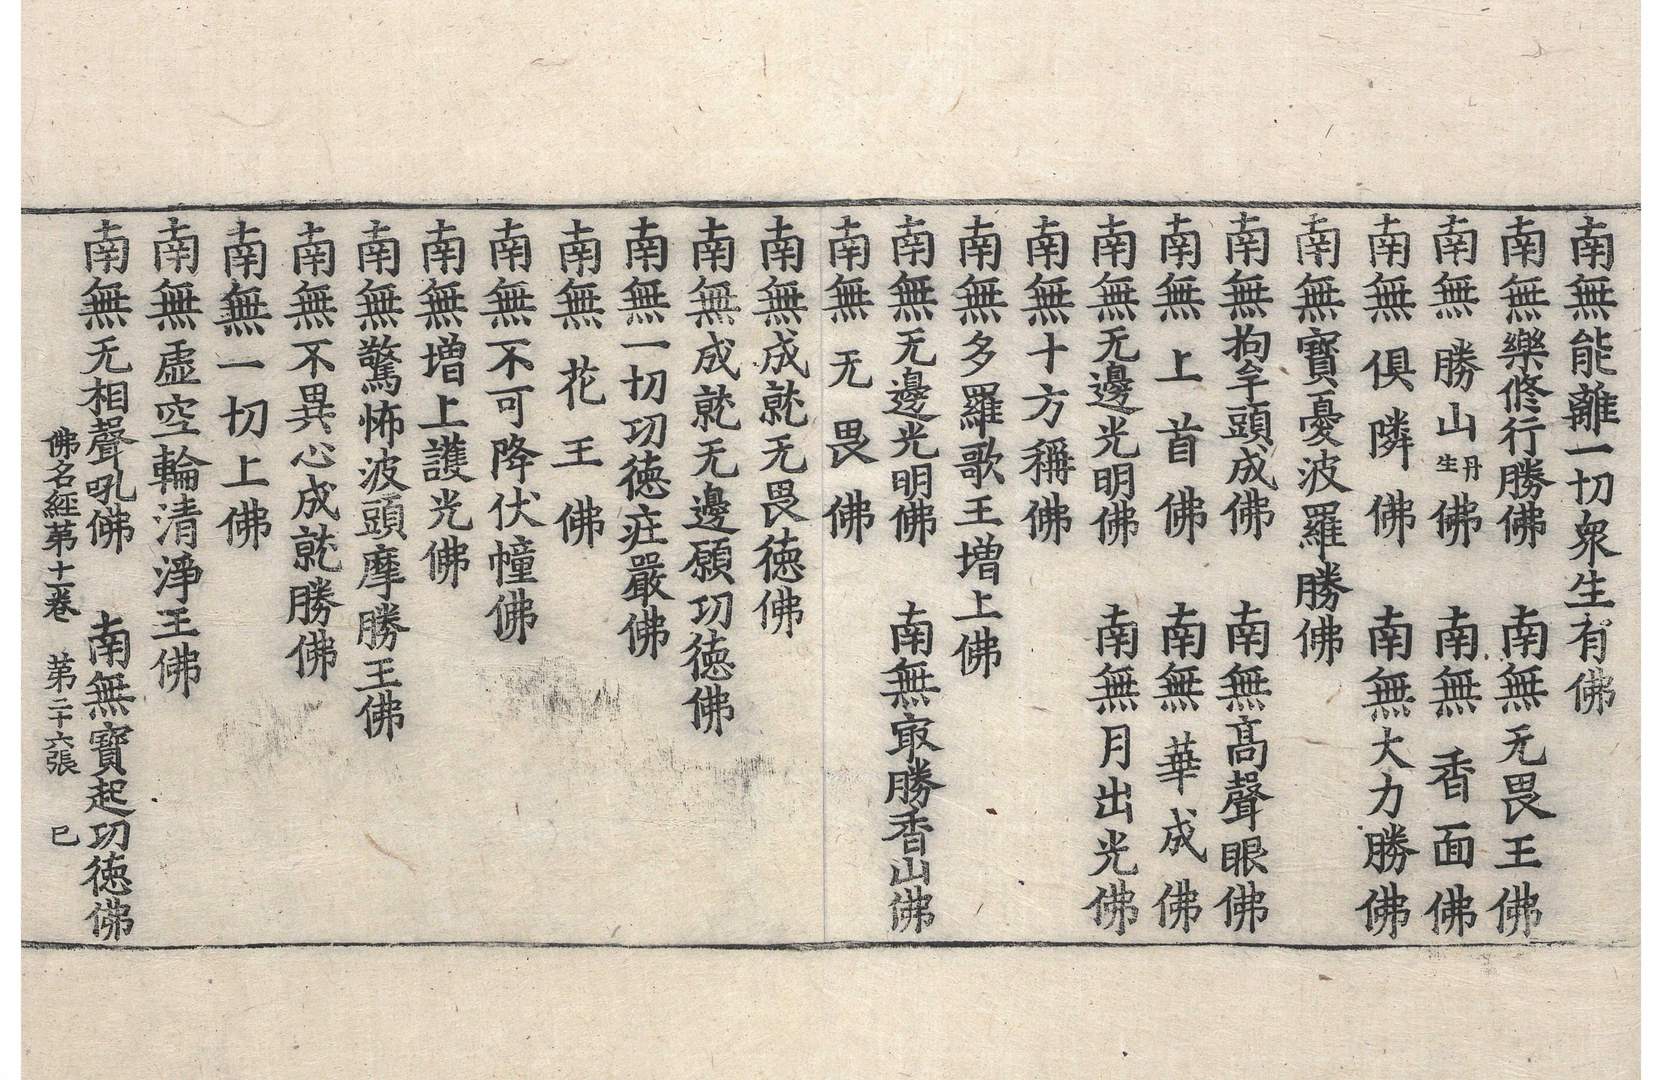 南無能離一切衆生有佛
南無樂修行勝佛　南無无畏王佛
南無勝山丹生佛　南無香面佛
南無俱隣佛　南無大力勝佛
南無寶憂波羅勝佛
南無拘牟頭成佛　南無髙聲眼佛
南無上首佛　南無華成佛
南無无邊光明佛　南無月出光佛
南無十方稱佛
南無多羅歌王增上佛
南無无邊光明佛　南無㝡勝香山佛
南無无畏佛
南無成就无畏德佛
南無成就无邊願功德佛
南無一切功德莊嚴佛
南無花王佛
南無不可降伏幢佛
南無增上護光佛
南無驚怖波頭摩勝王佛
南無不異心成就勝佛
南無一切上佛
南無虛空輪清淨王佛
南無无相聲吼佛　南無寶起功德佛
佛名經第十一卷　第二十六張　巳